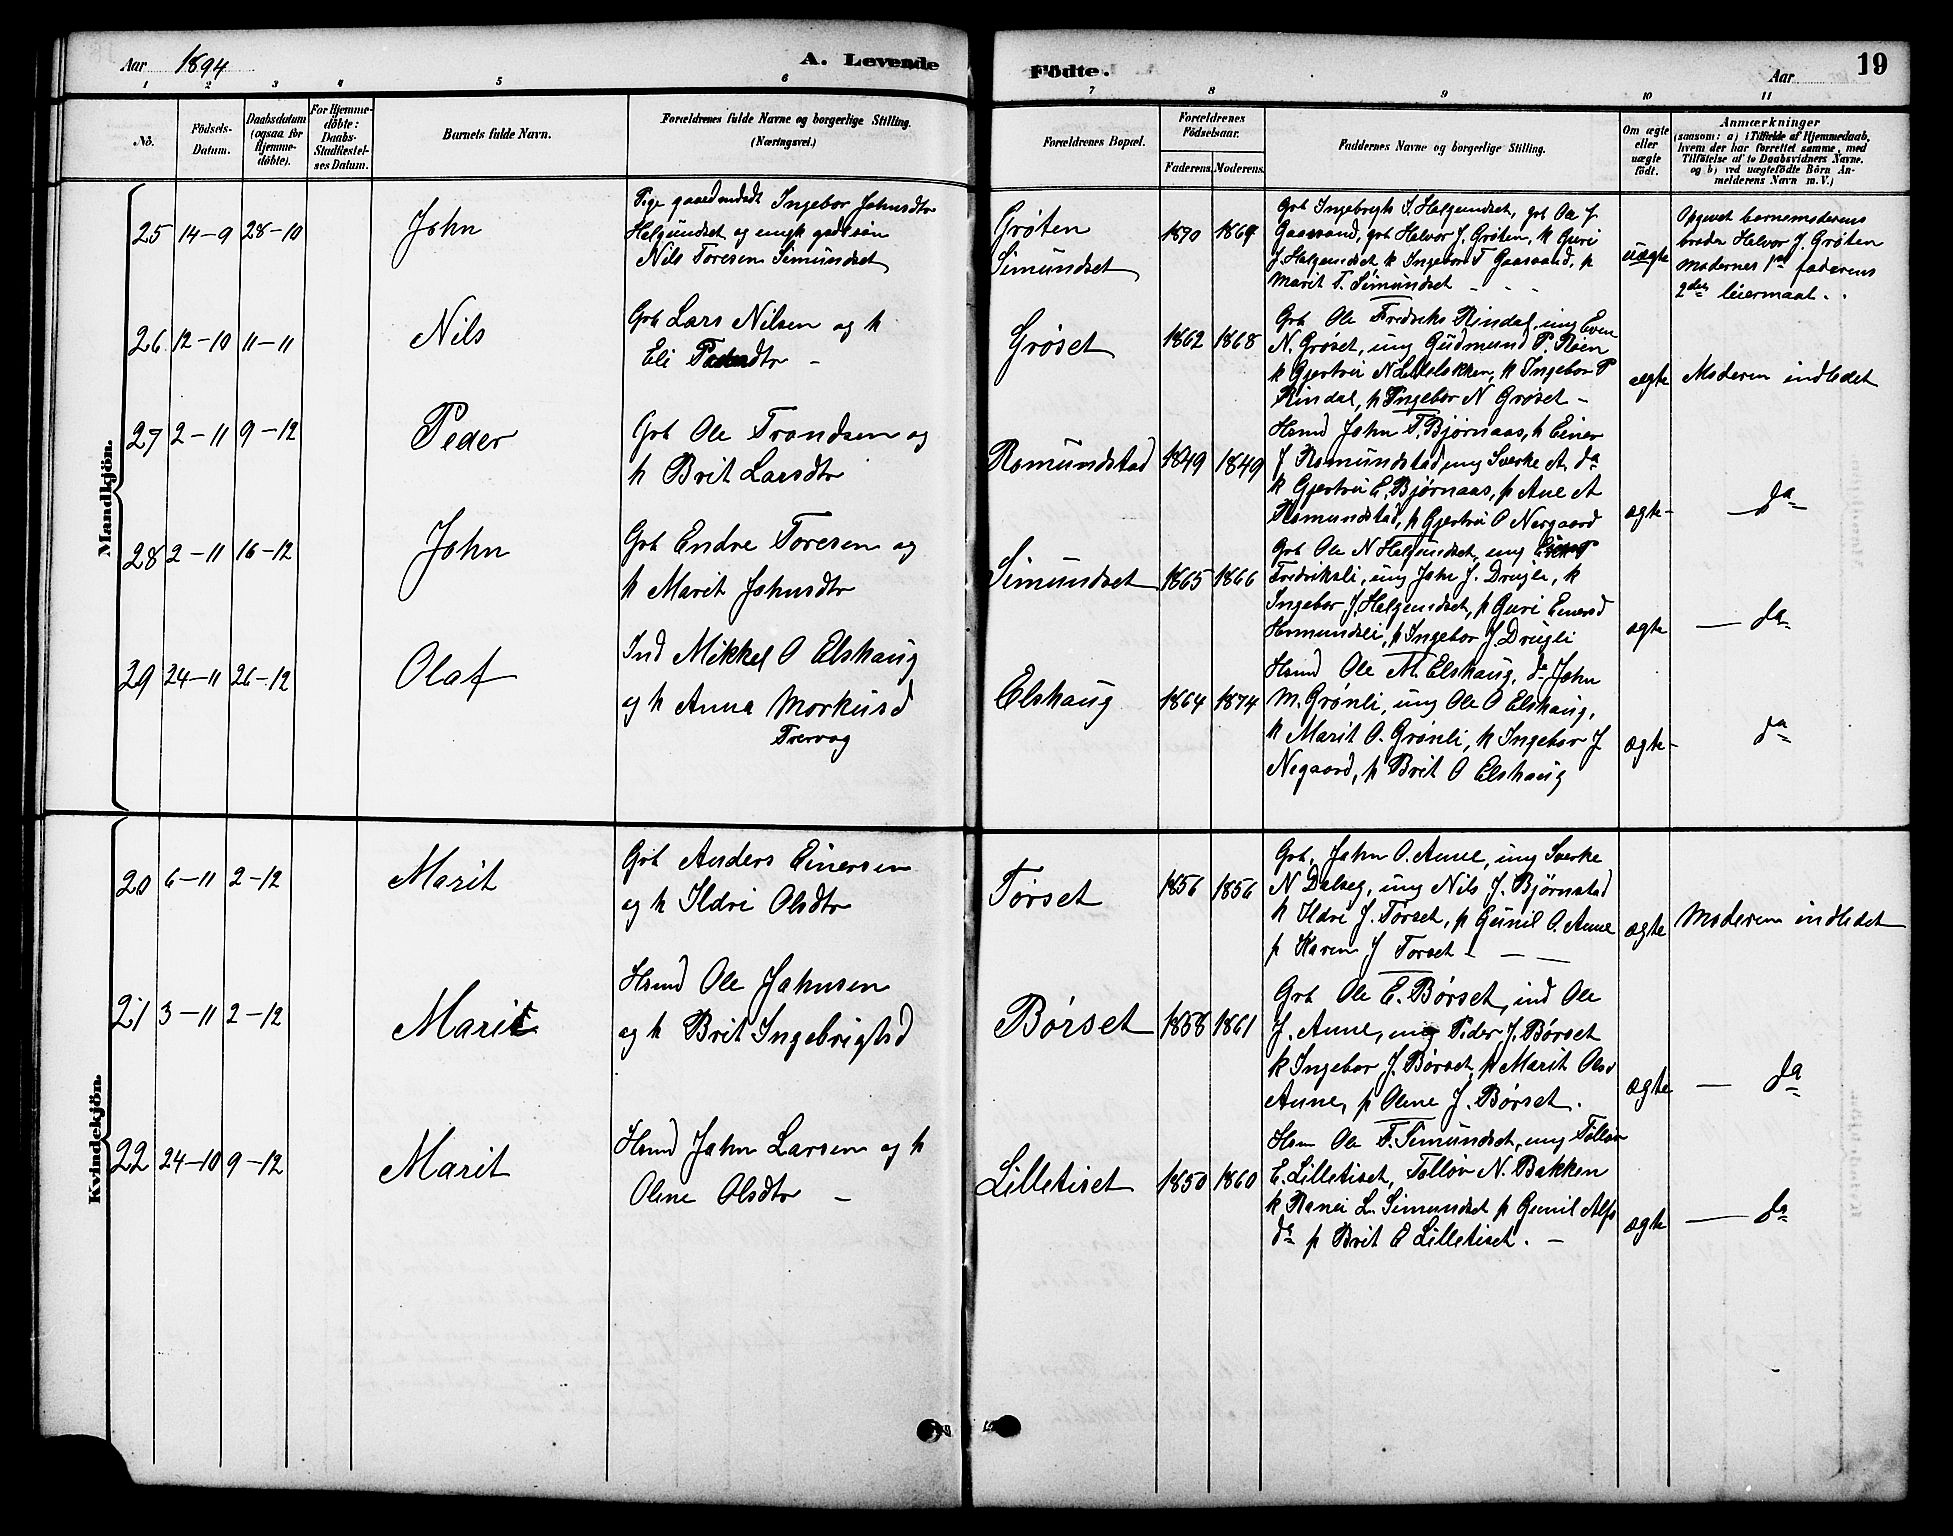 Aar 1894
A. Levende
Födte.
Aar
19
1 2 3 4 5 6 7 8 9 10 11
No.
Födsels-Datum.
Daabsdatum (ogsaa for Hjemme-döbte).
For Hjemme-döbte: Daabs-Stadfæstel-ses Datum.
Barnets fulde Navn.
Forældrenes fulde Navne og borgerlige Stilling. (Næringsvei.)
Forældrenes Bopæl.
Forældrenes Födselsaar.
Faderens. Moderens.
Faddernes Navne og borgerlige Stilling.
Om ægte eller uægte födt.
Anmærkninger
(saasom: a) i Tilfælde af Hjemmedaab, hvem der har forrettet samme, med Tilföielse af to Daabsvidners Navne. og b) ved uægtefödte Börn Anmelderens Navn m.V.)
Mandkjön.
25 14-9 28-10 John
Pige gaardmdadt Ingebor Johnsdtr
Helgundset og ungk gbdsøn
Nils Toresen Simundset
Grøten
Simundset
1870 1869
Grb Ingebrigt S. Halgundset, grb Ole J
Gaasvand, grb Halvor J. Grøten, k Guri
J. Halgundset k Ingebor T Gaasvand, p
Marit T. Simundset
uægte
Opgivet barnemoderens
broder Halvor J. Grøten
Modernes 1ste faderens
2det leiermaal.
26 12-10 11-11 Nils
Grb Lars Nilsen og k
Eli Pedersdtr
Grøset
1862 1868
Grb Ole Fredriks Rindal, ung Even
N. Grøset, ung Gudmund P. Røen
k Gjertrui N Lillelökken, k Ingebor P
Rindal, p Ingebor N Grøset
ægte
Moderen indledet
27 2-11 9-12 Peder
Grb Ole Trondsen og
k Brit Larsdtr
Romundstad
1849 1849
Hsmd John T. Bjørnaas, k Einer
J Romundstad, ung Sverke A. da
k Gjertrui E. Bjørnaas, p Ane A
Romundstad, p Gjertrui O Nergaard
ægte
da
28 2-11 16-12 John
Grb Endre Toresen og
k Marit Johnsdtr
Simundset
1865 1866
Grb Ole N Halgundset, ung
Fredriksli, ung John J. Drugli, k
Ingebor J. Halgundset, p Guri Einersd
Homundsli, p Ingebor J. Drugli
ægte
da
29 24-11 26-12 Olaf
Ind Mikkel O Elshaug
og k Anna Morkusd
Trervag
Elshaug
1864 1874
Hsmd Ole M. Elshaug, do John
M. Grønli, ung Ole O Elshaug,
k Marit O. Grønli, k Ingebor J
Negaard, p Brit O Elshaug
ægte
da
Kvindekjön.
20 6-11 2-12 Marit
Grb Anders Einersen
og k Ildri Olsdtr
Torset
1856 1856
Grb. John O. Aune, ung Sverke
N Dalseg, ung Nils J. Bjørnstad
k Ildri J. Torset, p Gunil O. Aune
p Karen J Torset
ægte
Moderen indledet
21 3-11 2-12 Marit
Hsmd Ole Johnsen
og k Brit Ingebrigtsd
Børset
1858 1861
Grb Ole E. Børset, ind Ole
J. Aune, ung Peder J. Børset
k Ingebor J. Børset, k Marit Olsd
Aune, p Olene J. Børset.
ægte
da
22 24-10 9-12 Marit
Hsmd John Larsen og k
Olene Olsdtr
Lilletiset
1850 1860
Hsm Ole T. Simundset, ung Tolløv
E. Lilletiset, Tolløv N. Bakken
k Ranei L. Simundset p Gunil Alfs
da p Brit E Lilletiset.
ægte
da